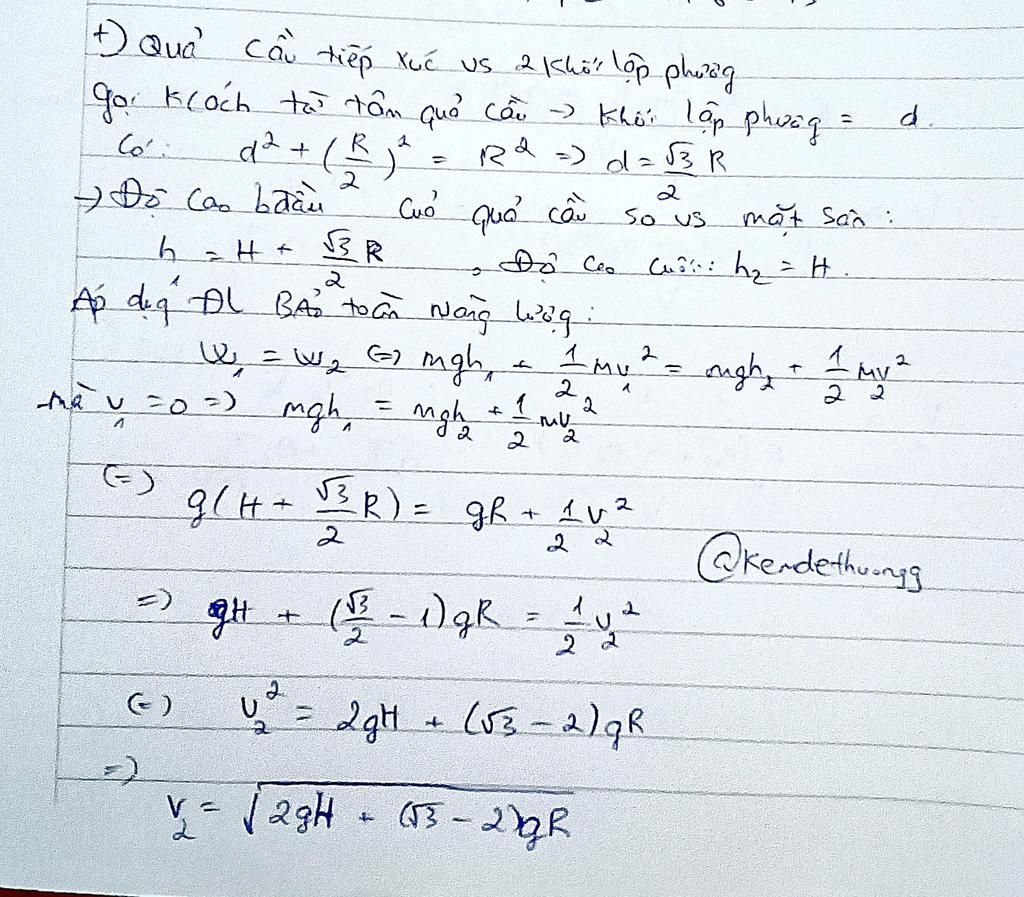 +) Quả cầu tiếp xúc vs 2 khối lập phương
gọi k/cách từ tâm quả cầu → khối lập phương = d.
Có: d² + (R/2)² = R² => d = √3/2 R
→ Độ cao bđầu của quả cầu so vs mặt sàn:
h₁ = H + √3/2 R , Độ cao cuối: h₂ = H.
Áp dụng ĐL Bảo toàn năng lượng:
W₁ = W₂ (=) mgh₁ + 1/2 mv₁² = mgh₂ + 1/2 mv₂²
mà v₁ = 0 => mgh₁ = mgh₂ + 1/2 mv₂²
(=) g(H + √3/2 R) = gR + 1/2 v₂²
@kendethuongg
=) gH + (√3/2 - 1)gR = 1/2 v₂²
(=) v₂² = 2gH + (√3 - 2)gR
=) v₂ = √(2gH + (√3 - 2)gR)